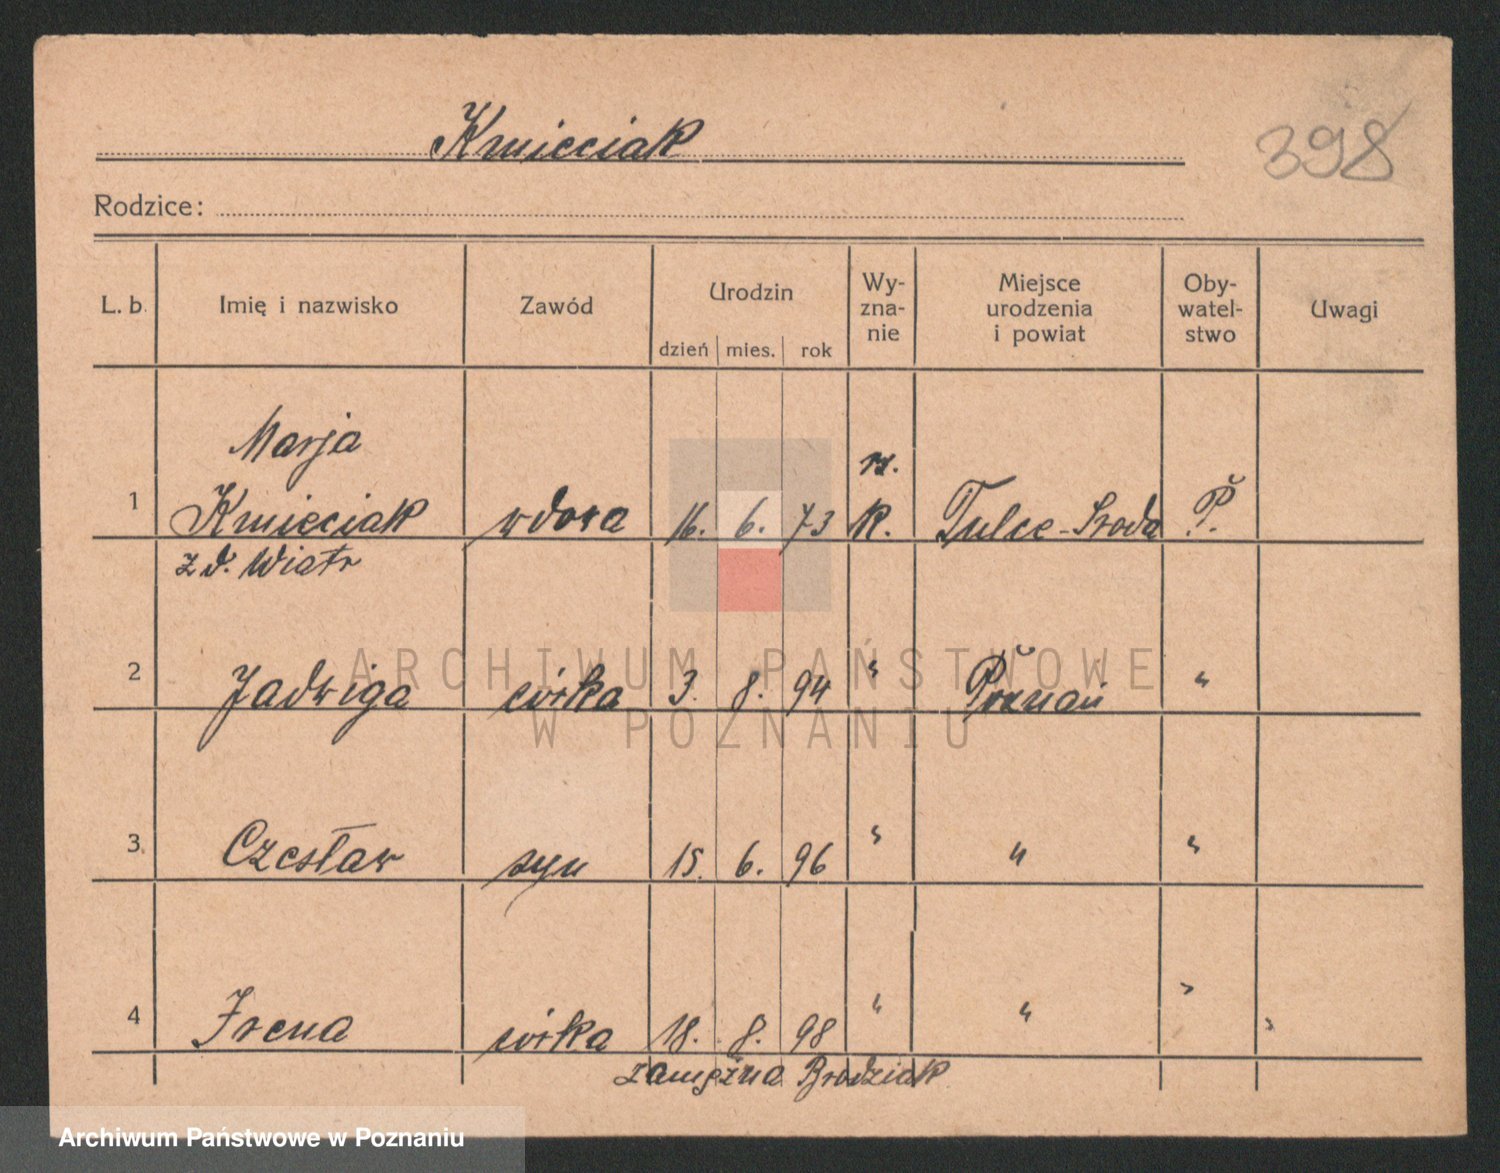 Kmieciak
398
Rodzice:
L. b. Imię i nazwisko Zawód Urodzin dzień mies. rok Wy-zna-nie Miejsce urodzenia i powiat Oby-watel-stwo Uwagi
Marja rz.
1 Kmieciak wdowa 16. 6. 73 K. Tulce-Środa P.
z d. Wiatr
2 Jadwiga córka 3. 8. 94 " Poznań "
3. Czesław syn 15. 6. 96 " " "
4 Irena córka 18. 8. 98 " " "
zamężna Brodziak
ARCHIWUM PAŃSTWOWE
W POZNANIU
Archiwum Państwowe w Poznaniu